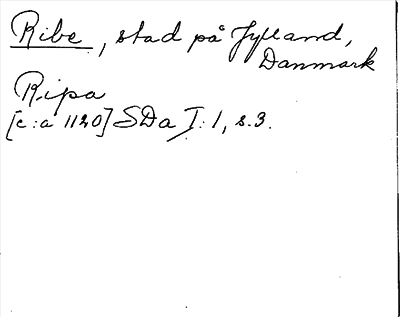 Ribe, stad på Jylland,
Danmark
Ripa
[c:a 1120] SDa I:1, s.3.